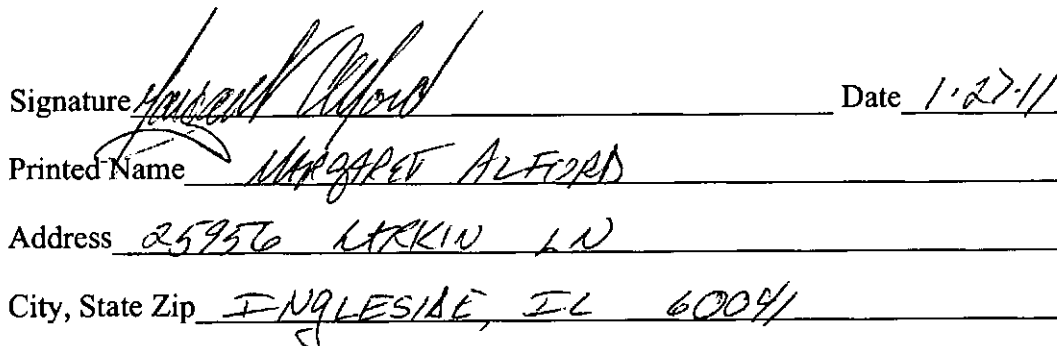 Signature Margaret Alford Date 1·27·11
Printed Name MARGARET ALFORD
Address 25956 LARKIN LN
City, State Zip INGLESIDE, IL 60041